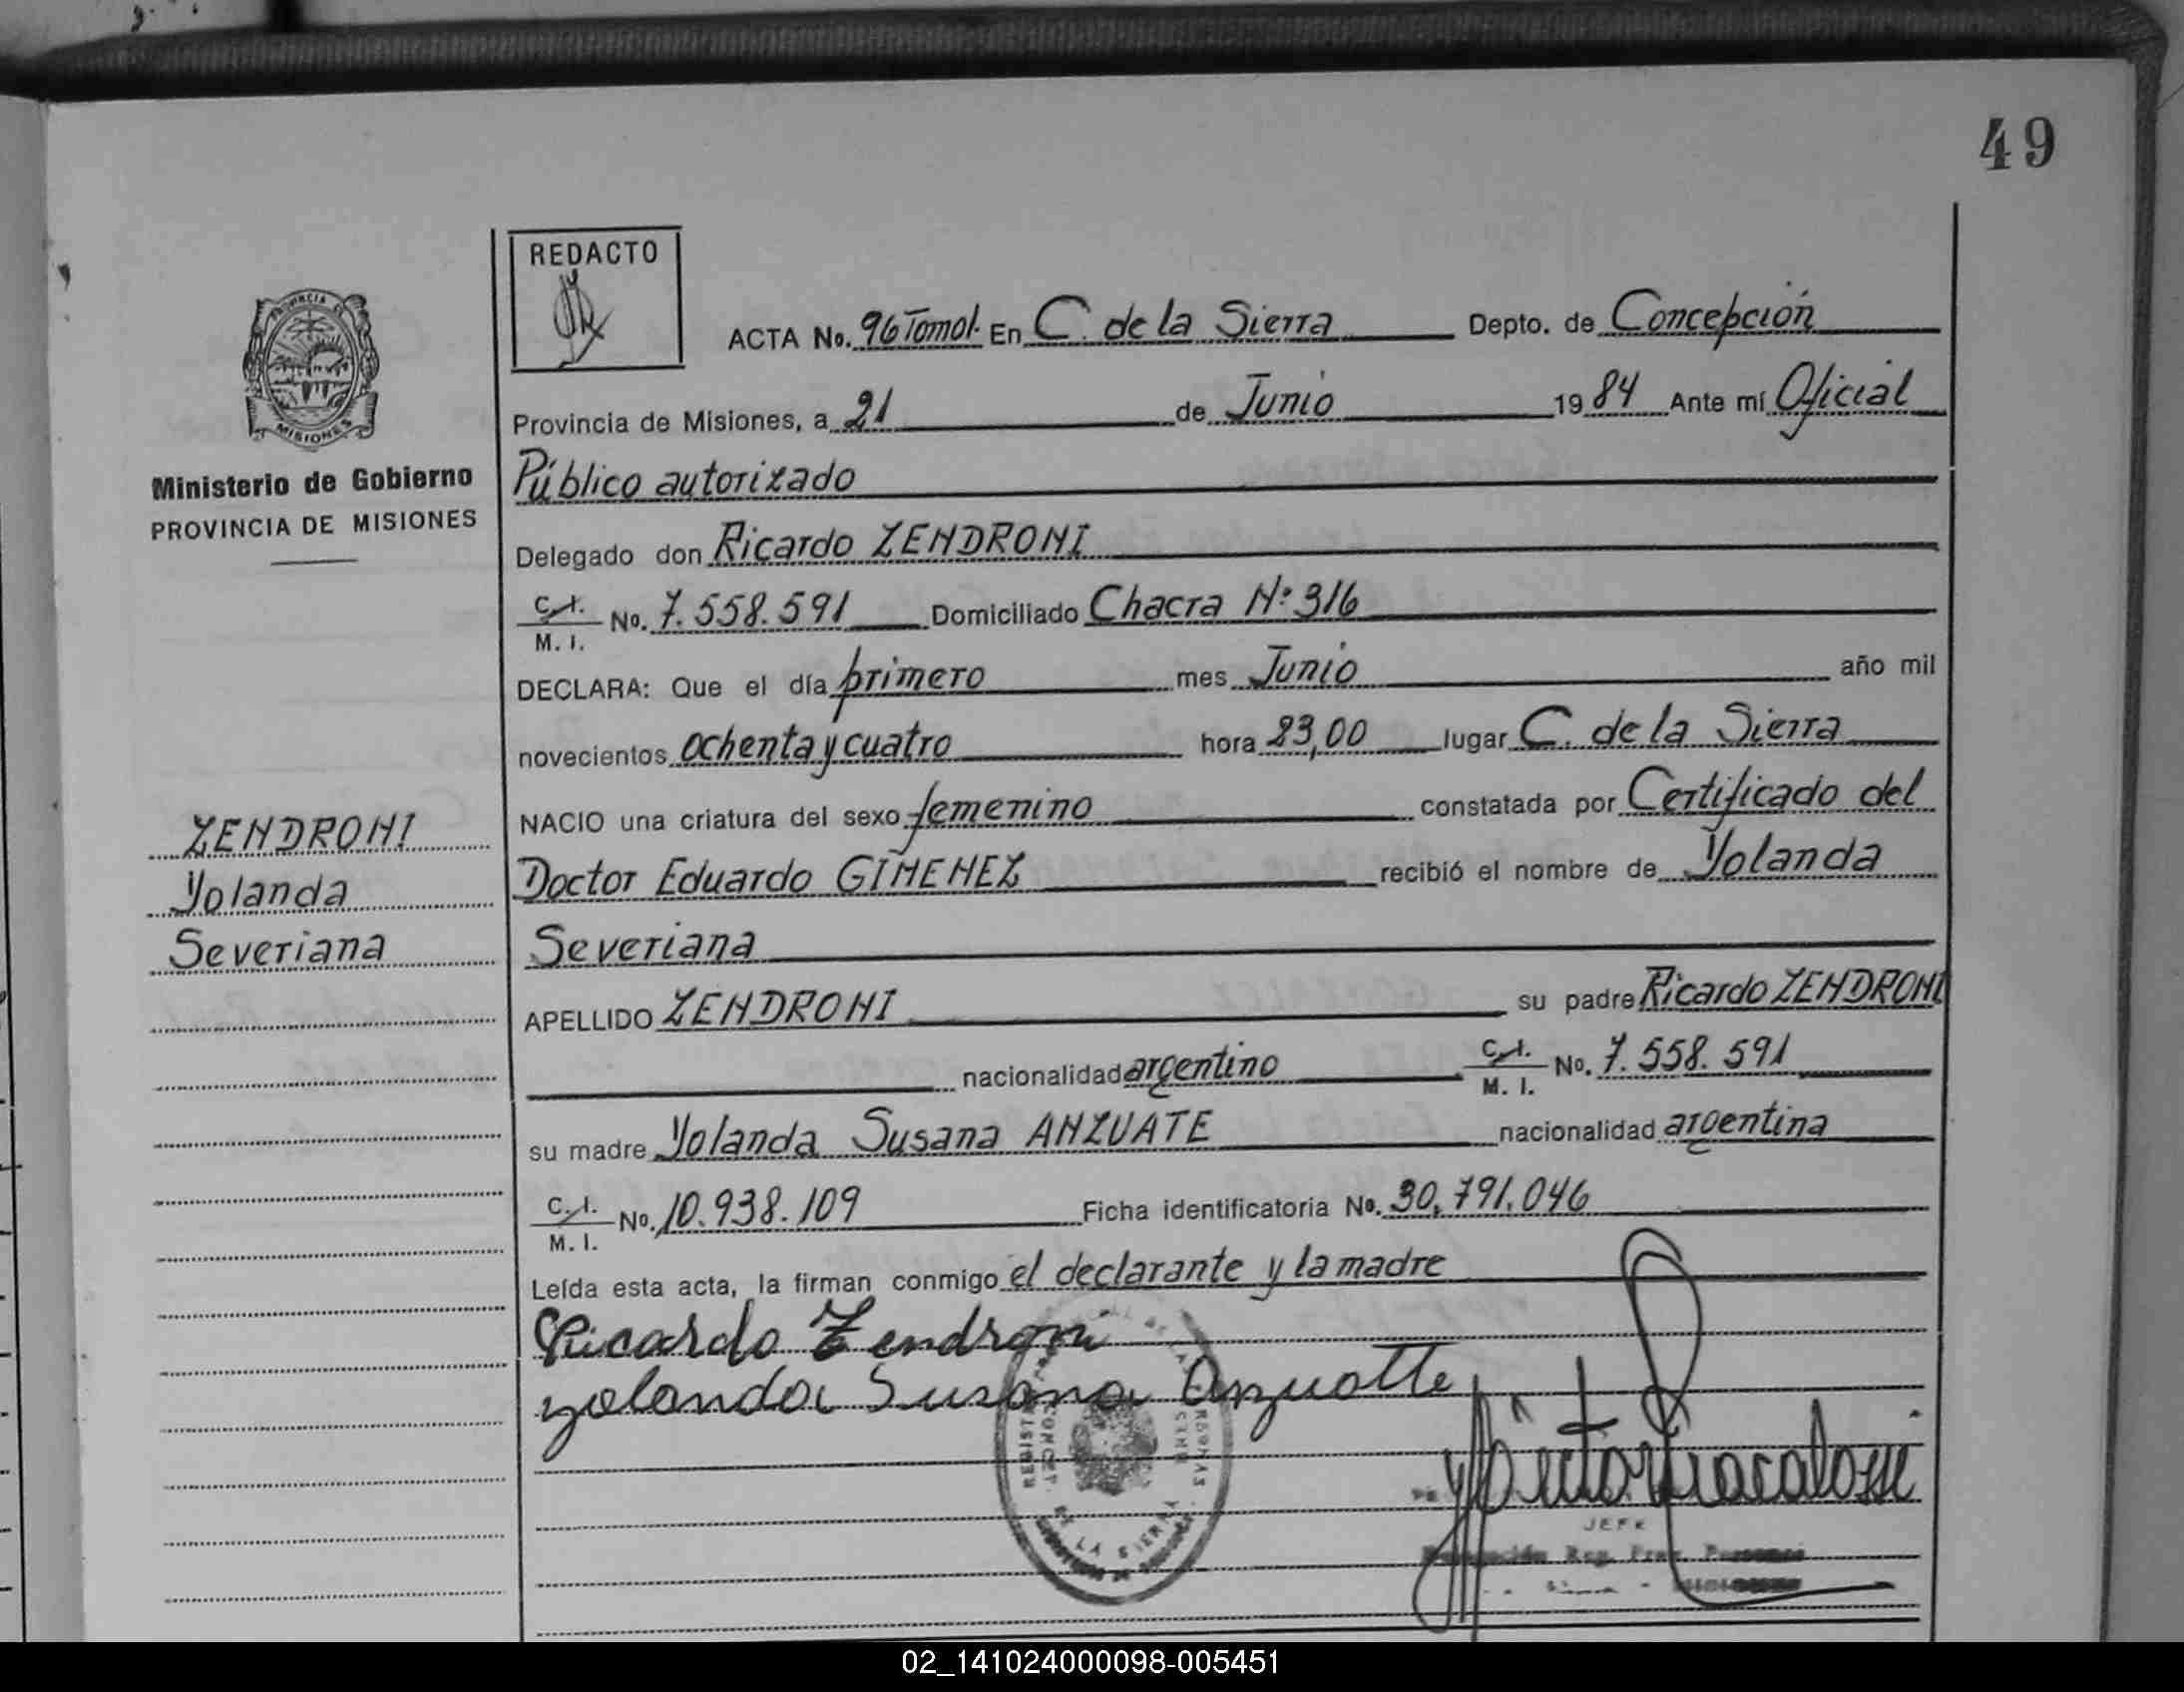 49
REDACTO
ACTA No. 96 Tomo I. En C. de la Sierra Depto. de Concepción
Provincia de Misiones, a 21 de Junio 1984 Ante mí Oficial
Público autorizado
Delegado don Ricardo ZENDRONI
C. I. M. I. No. 7.558.591 Domiciliado Chacra Nº 316
DECLARA: Que el día primero mes Junio año mil
novecientos ochenta y cuatro hora 23,00 lugar C. de la Sierra
NACIO una criatura del sexo femenino constatada por Certificado del
Doctor Eduardo GIMENEZ recibió el nombre de Yolanda
Severiana
APELLIDO ZENDRONI su padre Ricardo ZENDRONI
nacionalidad argentino C. I. M. I. No. 7.558.591
su madre Yolanda Susana ANZUATE nacionalidad argentina
C. I. M. I. No. 10.938.109 Ficha identificatoria No. 30.791.046
Leída esta acta, la firman conmigo el declarante y la madre
Ricardo Zendroni
Yolanda Susana Anzuatte
JEFE
PROVINCIA
MISIONES
Ministerio de Gobierno
PROVINCIA DE MISIONES
ZENDRONI
Yolanda
Severiana
DE LA SIERRA
02_141024000098-005451